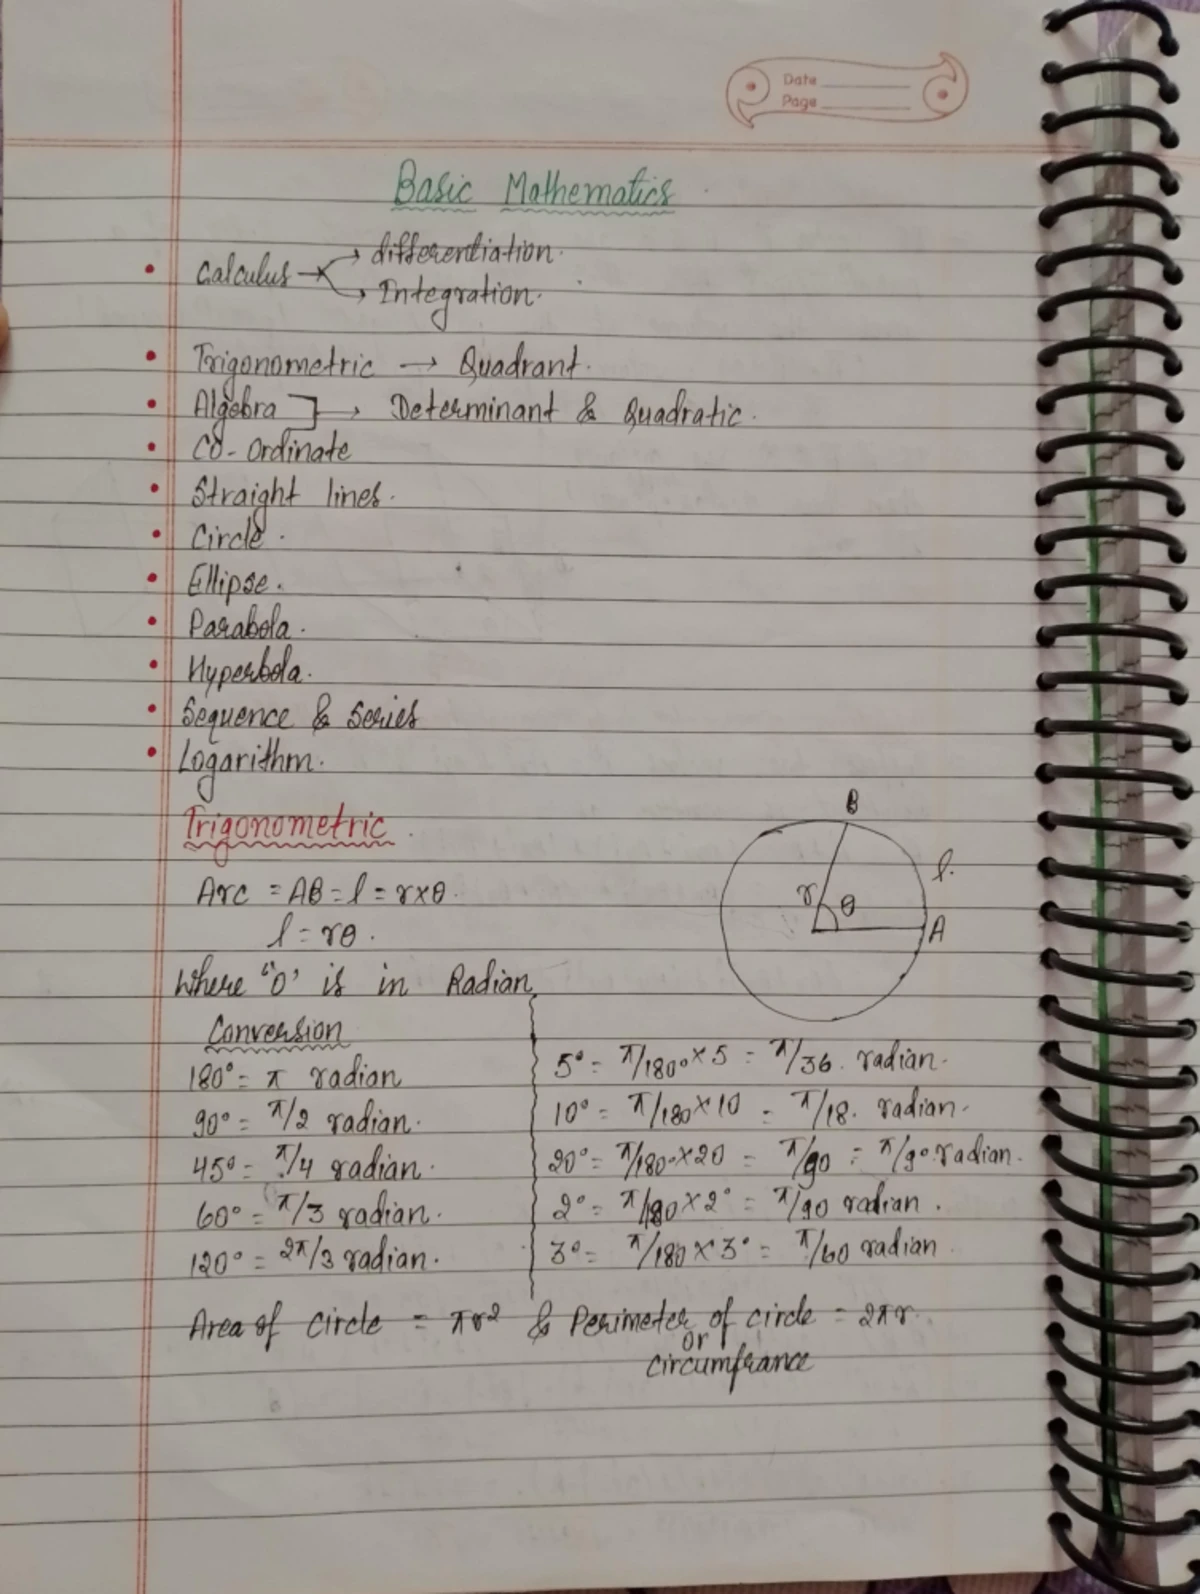 Date
Page
Basic Mathematics
• Calculus → differentiation.
→ Integration.
• Trigonometric → Quadrant.
• Algebra ] → Determinant & Quadratic.
• Co-Ordinate
• Straight lines.
• Circle.
• Ellipse.
• Parabola.
• Hyperbola.
• Sequence & Series
• Logarithm.
Trigonometric
B
l.
r θ
A
Arc = AB = l = r×θ.
l = rθ.
Where "0' is in Radian
Conversion
180° = π radian
90° = π/2 radian.
45° = π/4 radian.
60° = π/3 radian.
120° = 2π/3 radian.
5° = π/180° × 5 = π/36. radian.
10° = π/180 × 10 = π/18. radian.
20° = π/180° × 20 = π/90 = π/90. radian.
2° = π/180 × 2° = π/90 radian.
3° = π/180 × 3° = π/60 radian.
Area of circle = πr² & Perimeter of circle = 2πr.
or
circumfrance